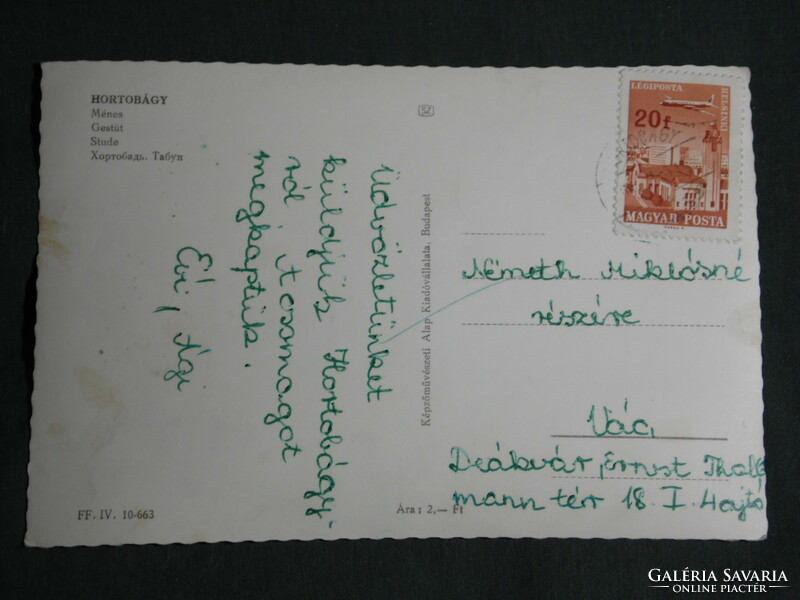 HORTOBÁGY
Ménes
Gestüt
Stude
Хортобадь. Табун
Üdvözletünket
küldjük Hortobágy-
ról. A csomagot
megkaptuk.
Évi, Ági
Képzőművészeti Alap Kiadóvállalata, Budapest
LÉGIPOSTA
HELSINKI
20f
MAGYAR POSTA
Németh Miklósné
részére
Vác,
Deákvár, Ernst Thäl-
mann tér 18. I. 4 ajtó
FF. IV. 10-663
Ára: 2,— Ft
GALÉRIA SAVARIA
ONLINE PIACTÉR